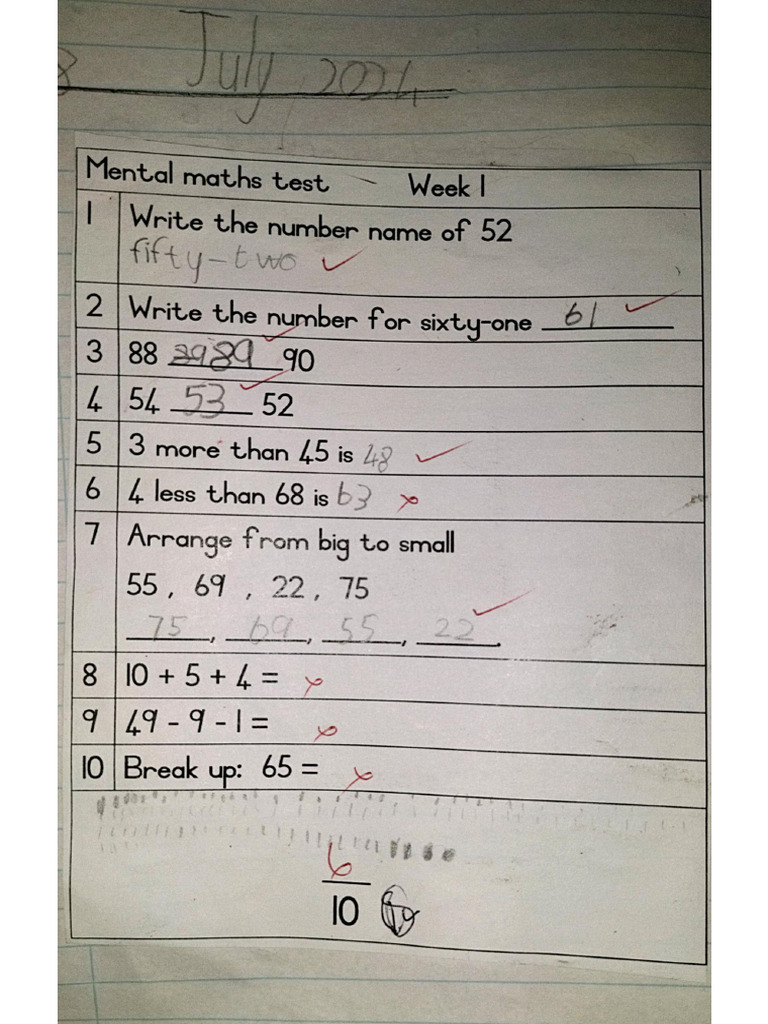 July 2024
Mental maths test - Week 1
1 Write the number name of 52
fifty-two
2 Write the number for sixty-one 61
3 88 89 90
4 54 53 52
5 3 more than 45 is 48
6 4 less than 68 is 63
7 Arrange from big to small
55, 69, 22, 75
75, 69, 55, 22.
8 10 + 5 + 4 =
9 49 - 9 - 1 =
10 Break up: 65 =
6
10